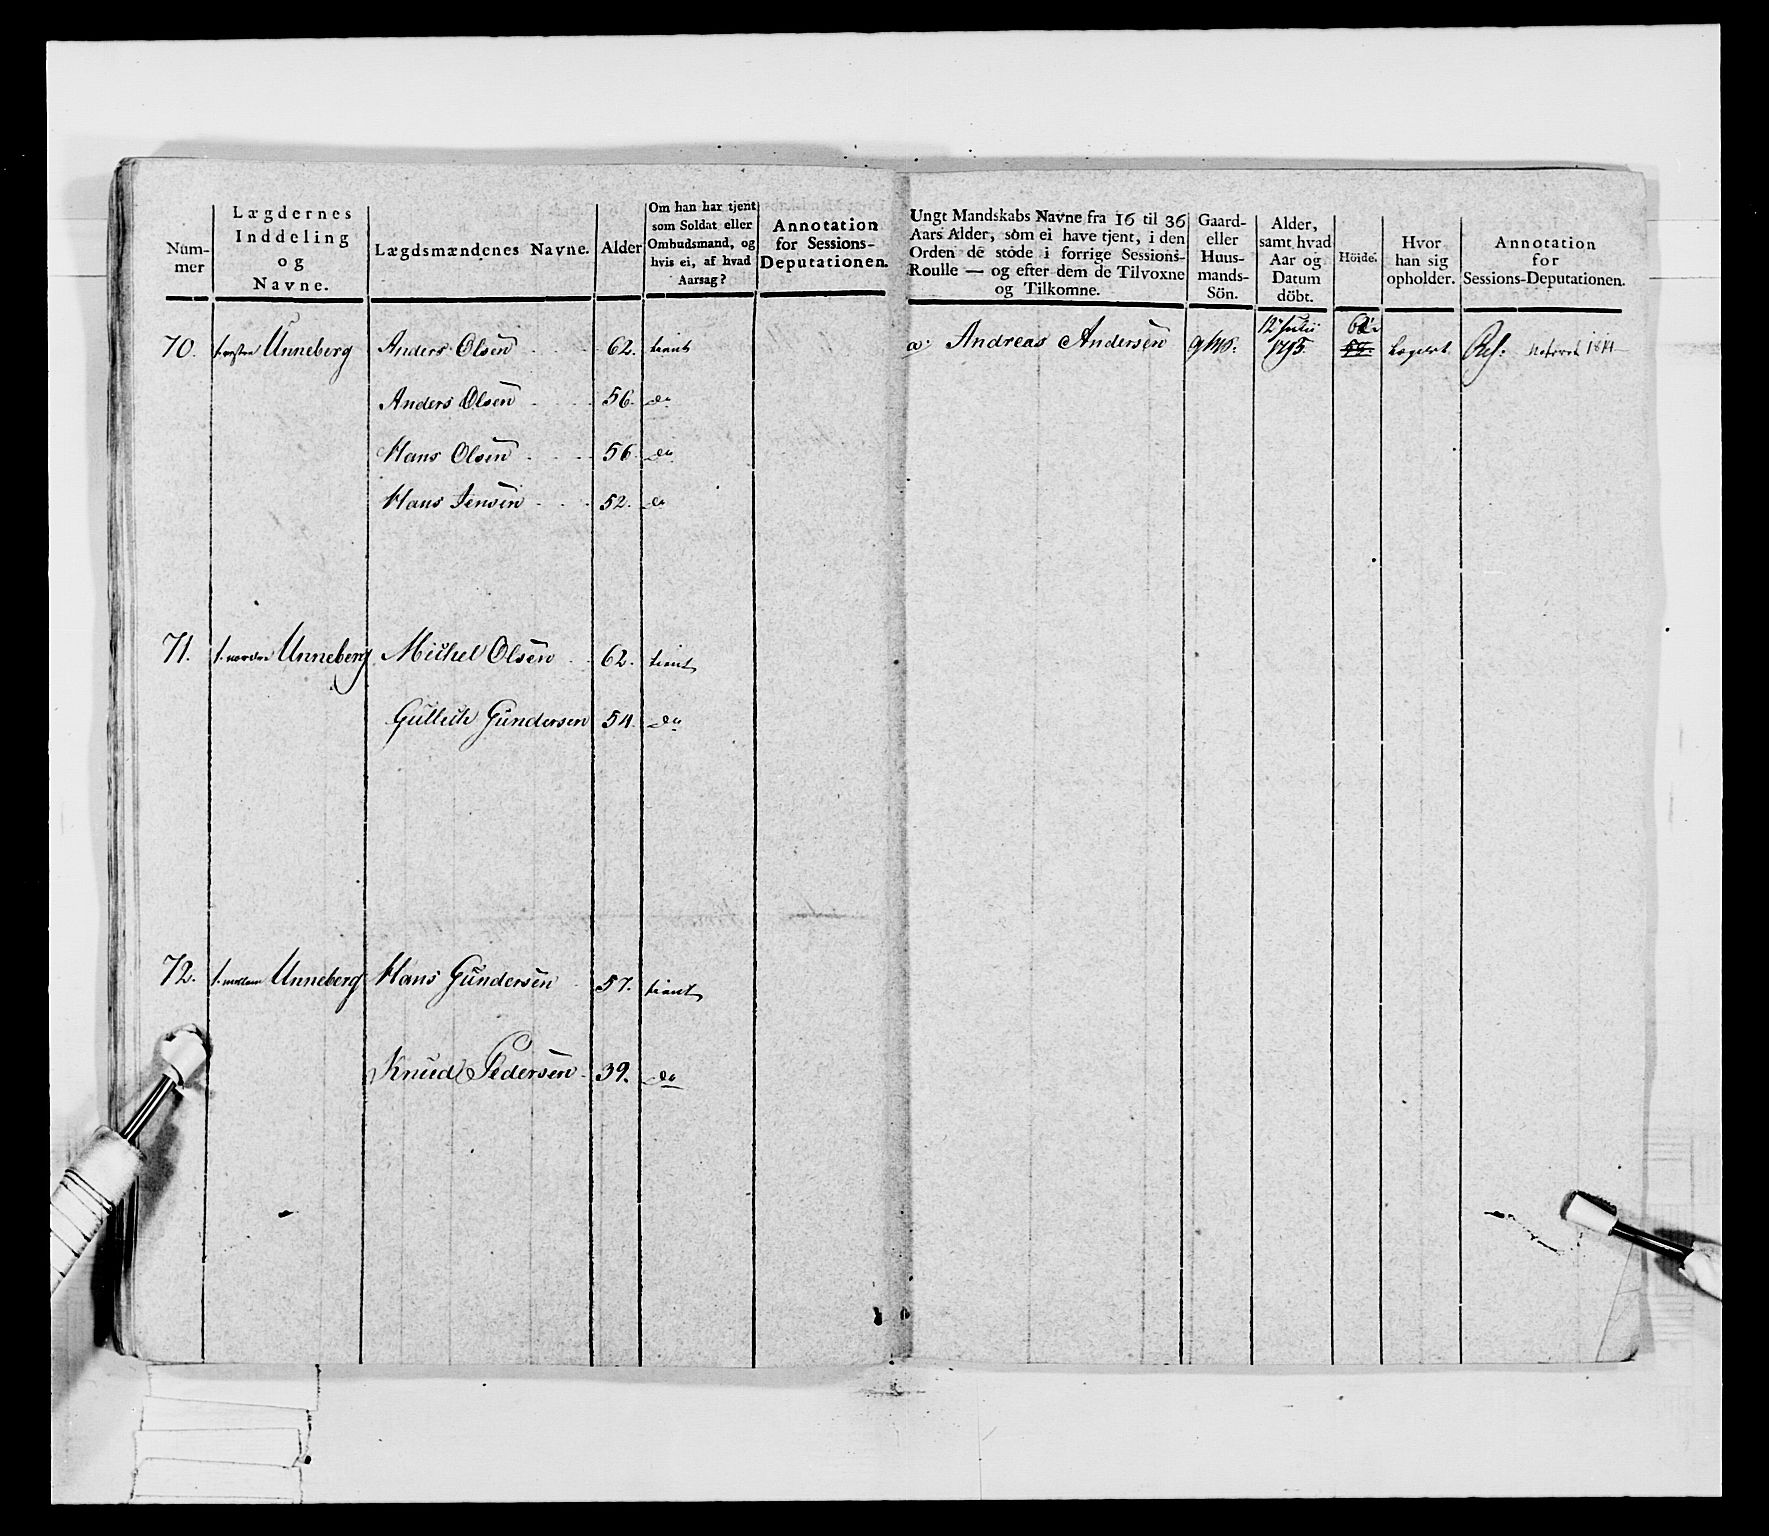 Nummer
Lægdernes Inddeling og Navne.
Lægdsmændenes Navne.
Alder
Om han har tjent som Soldat eller Ombudsmand, og hvis ei, af hvad Aarsag?
Annotation for Sessions-Deputationen.
Ungt Mandskabs Navne fra 16 til 36 Aars Alder, som ei have tjent, i den Orden de stode i forrige Sessions-Roulle — og efter dem de Tilvoxne og Tilkomne.
Gaard- eller Huus-mands-Sön.
Alder, samt hvad Aar og Datum döbt.
Höide.
Hvor han sig opholder.
Annotation for Sessions-Deputationen.
70. Unneberg Anders Olsen 62. tient
a. Andreas Andersen 12 Julii 1795. Lægdet Ref. 1814
Anders Olsen 56. do
Hans Olsen 56. do
Hans Jensen 52. do
71. nordre Unneberg Michel Olsen 62. tient
Gullich Gundersen 54. do
72. mellem Unneberg Hans Gundersen 57. tient
Knud Pedersen 39. do